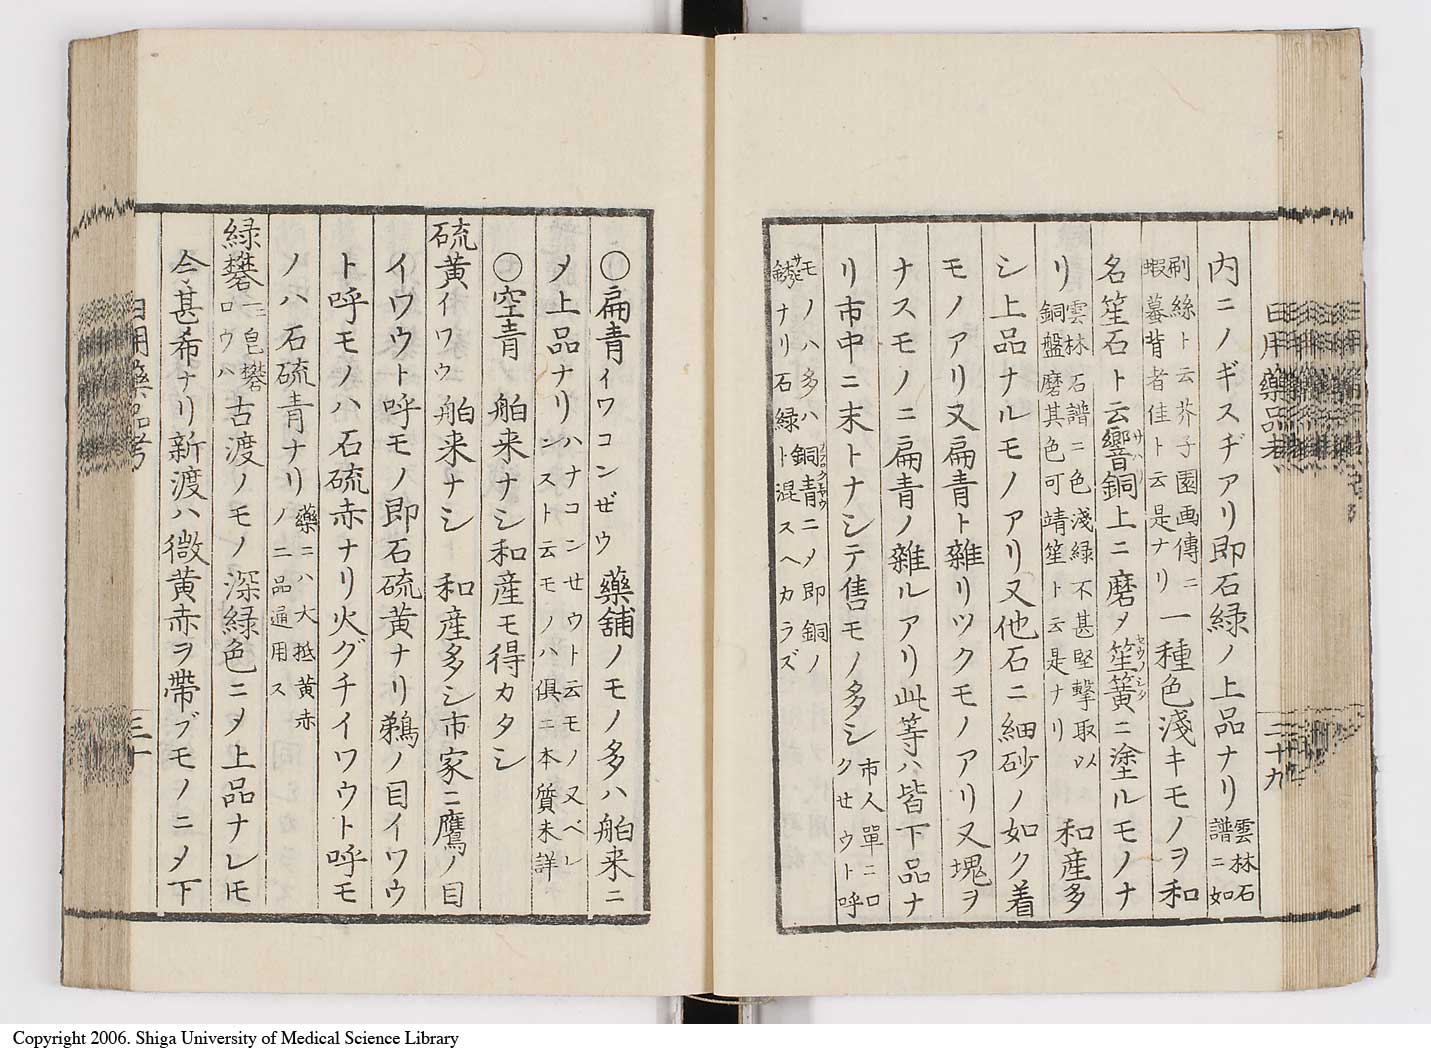 日用藥品考 二十九
内ニノギスヂアリ即石緑ノ上品ナリ雲林石譜ニ如
刷絲ト云芥子園画傳ニ蝦蟇背者佳ト云是ナリ一種色淺キモノヲ和
名笙石ト云響銅上ニ磨〆笙簧ニ塗ルモノナ
リ雲林石譜ニ色淺緑不甚堅撃取以銅盤磨其色可靖笙ト云是ナリ和産多
シ上品ナルモノアリ又他石ニ細砂ノ如ク着
モノアリ又扁青ト雜リツクモノアリ又塊ヲ
ナスモノニ扁青ノ雜ルアリ此等ハ皆下品ナ
リ市中ニ末トナシテ售モノ多シ市人單ニロクせウト呼
モノハ多ハ銅青ニ〆即銅ノ鏽ナリ石緑ト混スヘカラズ
〇扁青イワコンぜウ藥舗ノモノ多ハ舶来ニ
〆上品ナリハナコンせウト云モノ又ベレンスト云モノハ俱ニ本質未詳
〇空青舶来ナシ和産モ得カタシ
硫黄イワウ舶来ナシ和産多シ市家ニ鷹ノ目
イワウト呼モノ即石硫黄ナリ鵜ノ目イワウ
ト呼モノハ石硫赤ナリ火グチイワウト呼モ
ノハ石硫青ナリ藥ニハ大抵黄赤ノ二品通用ス
緑礬一ニ皂礬ロウハ古渡ノモノ深緑色ニヲ上品ナレモ
今甚希ナリ新渡ハ微黄赤ヲ帶ブモノニ〆下
日用藥品考 三十
Copyright 2006. Shiga University of Medical Science Library